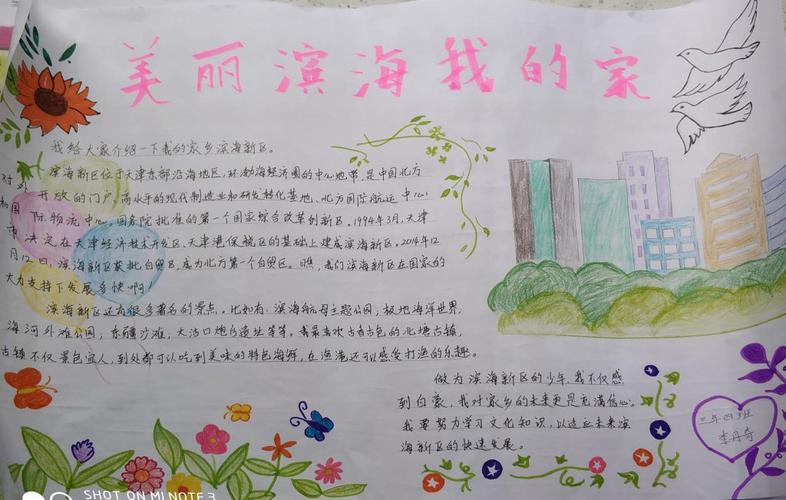 美丽滨海我的家
我给大家介绍一下我的家乡滨海新区。
滨海新区位于天津东部沿海地区,环渤海经济圈的中心地带,是中国北方
对外开放的门户、高水平的现代制造业和研发转化基地、北方国际航运中心
和国际物流中心、国务院批准的第一个国家综合改革创新区。1994年3月,天津
市决定在天津经济技术开发区、天津港保税区的基础上建成滨海新区。2014年12
月12日,滨海新区获批自贸区,成为北方第一个自贸区。瞧,我们滨海新区在国家的
大力支持下发展多快啊!
滨海新区还有很多著名的景点。比如有:滨海航母主题公园,极地海洋世界,
海河外滩公园,东疆沙滩,大沽口炮台遗址等等。我最喜欢古香古色的北塘古镇,
古镇不仅景色宜人,到处都可以吃到美味的特色海鲜,在渔港还可以感受打渔的乐趣。
做为滨海新区的少年,我不仅感
到自豪,我对家乡的未来更是充满信心。
我要努力学习文化知识,以适应未来滨
海新区的快速发展。
三年四班
李丹奇
SHOT ON MI NOTE 3